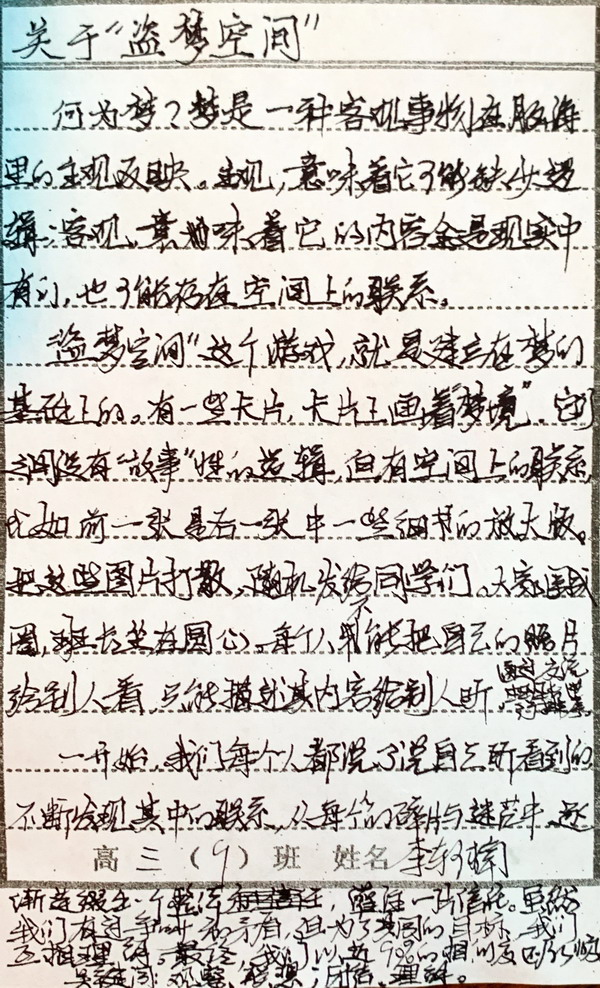 关于“盗梦空间”
何为梦？梦是一种客观事物在脑海
里的主观反映。主观，意味着它可能缺少逻
辑；客观，意味着它的内容全是现实中
有的，也可能存在空间上的联系。
“盗梦空间”这个游戏，就是建立在梦的
基础上的。有一些卡片，卡片上画着“梦境”。它们
之间没有“故事”性的逻辑，但有空间上的联系，
比如前一张是后一张中一些细节的放大版。
把这些图片打散，随机发给同学们。大家围成
圈，班长坐在圆心。每个人不能把自己的照片
给别人看，只能描述其内容给别人听，通过交流
一开始，我们每个人都说了说自己所看到的
不断发现其中的联系，从每个的碎片与迷茫中，逐
高三（9）班 姓名 李
渐连缀出一个整体
我们有过争吵和矛盾，但为了共同的目标，我们
最终，我们以近90%的相似度
观察，联想，团结，理解。